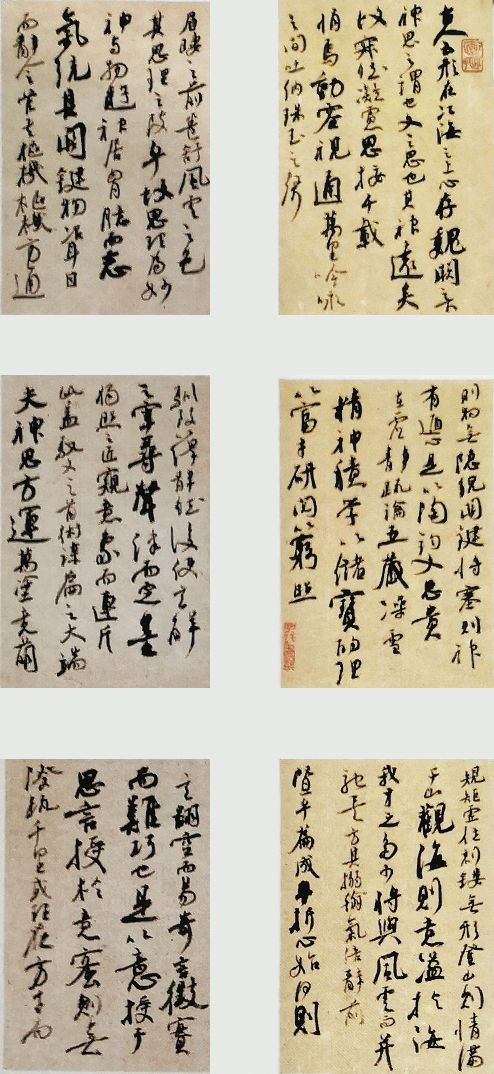 形在江海之上心存魏闕之
神思之謂也文之思也其神遠矣
故寂然凝慮思接千載
悄焉動容視通萬里吟咏
之間吐納珠玉之聲
眉睫之前卷舒風雲之色
其思理之致乎故思理為妙
神與物遊神居胸臆而志
氣統其關鍵物沿耳目
而辭令管其樞機樞機方通
則物無隱貌關鍵將塞則神
有遁心是以陶鈞文思貴
在虛靜疏瀹五藏澡雪
精神積學以儲寶酌理
以富才研閱以窮照
馴致以繹辭然後使玄解
之宰尋聲律而定墨
獨照之匠窺意象而運斤
此蓋馭文之首術謀篇之大端
夫神思方運萬塗競萌
規矩虛位刻鏤無形登山則情滿
于山觀海則意溢於海
我才之多少將與風雲而并
驅矣方其搦翰氣倍辭前
暨乎篇成半折心始何則
言翻空而易奇言徵實
而難巧也是以意授于
思言授於意密則無
際疏則千里或理在方寸而